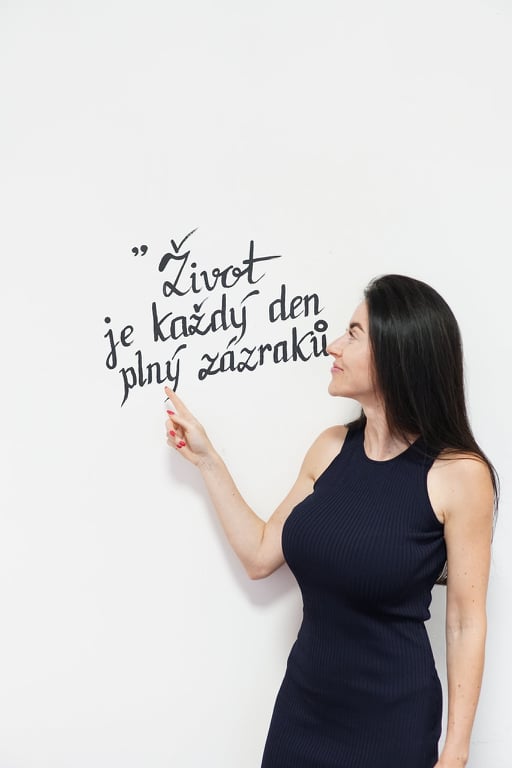 ” Život
je každý den
plný zázraků